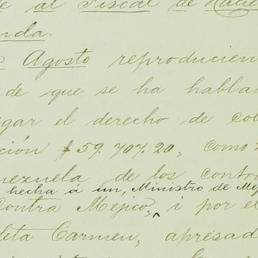 al Fiscal de Hacie
nda.
Agosto reproducien
de que se ha habla
gar el derecho de co
ción $59.707.20, como
nezuela de los contr
hecha á un, Ministro de Me
Contra Mejico, i por el
leta Carmen, apresad